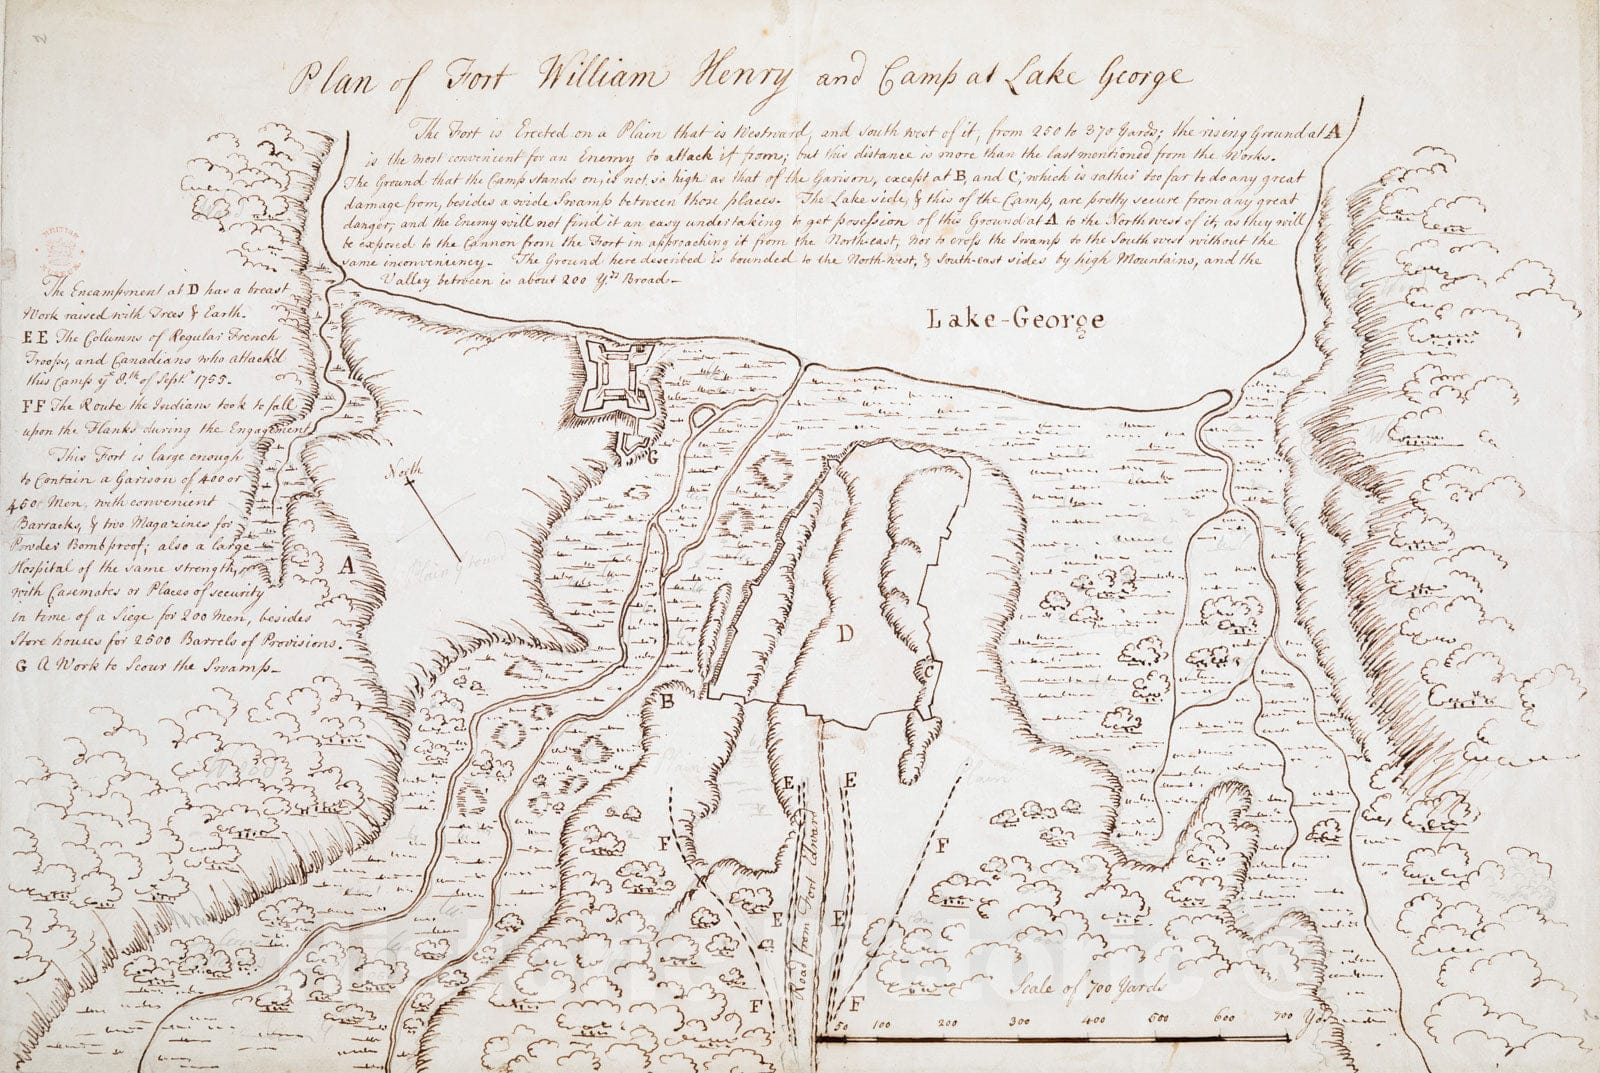 Plan of Fort William Henry and Camp at Lake George
The Fort is Erected on a Plain that is Westward, and South West of it, from 250 to 370 Yards; the rising Ground at A
is the most convenient for an Enemy to attack it from; but this distance is more than the last mentioned from the Works.
The Ground that the Camp stands on, is not so high as that of the Garison, except at B, and C; which is rather too far to do any great
damage from, besides a wide Swamp between those places. The Lake side, & this of the Camp, are pretty secure from any great
danger, and the Enemy will not find it an easy undertaking to get posession of this Ground at A to the Northwest of it, as they will
be exposed to the Cannon from the Fort in approaching it from the Northeast, nor to cross the Swamp to the South west without the
same inconveniency. The Ground here described is bounded to the North-west, & South-east sides by high Mountains, and the
Valley between is about 200 Yds Broad.
The Encampment at D has a breast
Work raised with Trees & Earth.
EE The Columns of Regular French
Troops, and Canadians who attack'd
this Camp ye 8th of Septr 1755.
FF The Route the Indians took to fall
upon the Flanks during the Engagement
This Fort is large enough
to Contain a Garison of 400 or
450 Men, with convenient
Barracks, & two Magazines for
Powder Bombproof; also a large
Hospital of the same strength,
with Casemates or Places of security
in time of a Siege for 200 Men, besides
Store houses for 2500 Barrels of Provisions.
G A Work to Scour the Swamp.
Lake-George
North
G
A
Plain Ground
D
C
B
Plain
Plain
E
E
F
F
Road from Fort Edward
E
E
F
F
Scale of 700 Yards
50 100 200 300 400 500 600 700 Yds